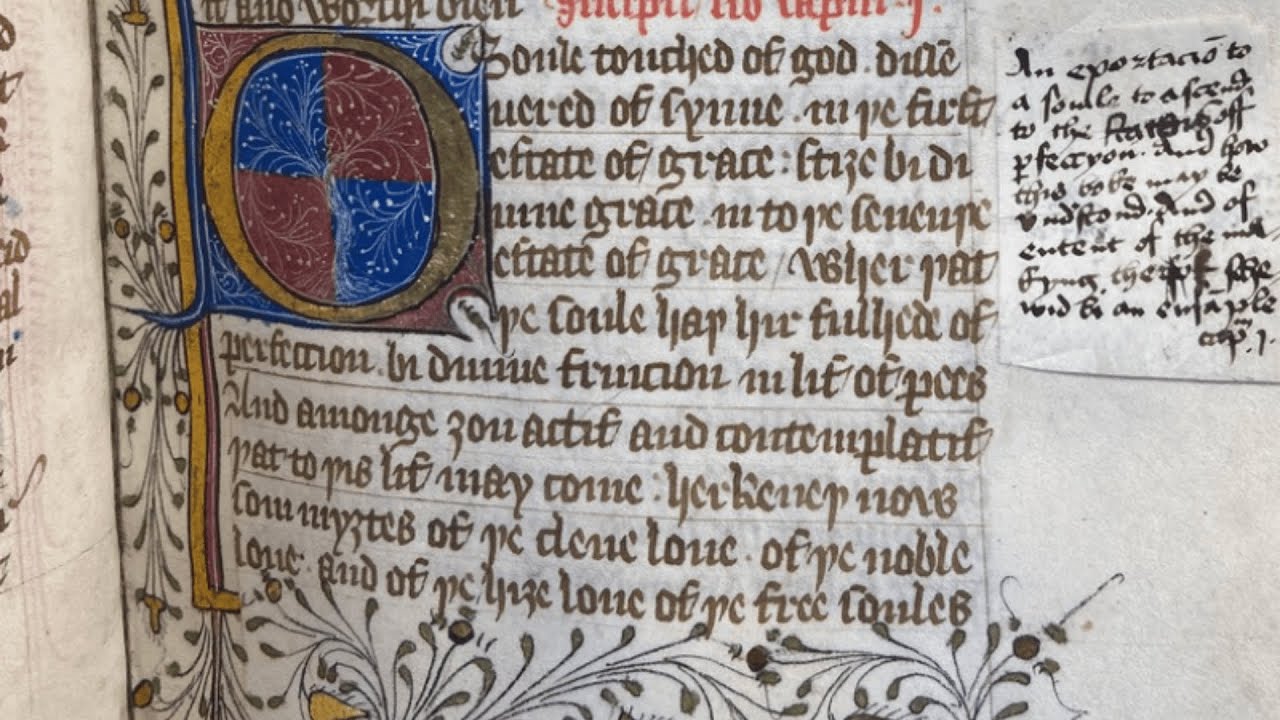 it and worthi bien Incipit lib capm .j.
O Soule touched of god . disse
uered of synne . in þe first
estate of grace : stize bi di
uine grace . in to þe seuenþe
estate of grace / wher þat
þe soule haþ hir fulhede of
perfeccion . bi diuine fruicion in lif of pees
And amonge zou actif and contemplatif
þat to þis lif may come : herkeneþ now
som myztes of þe clene loue . of þe noble
loue . and of þe hize loue of þe free soules
An exortacio to
a soule to ascend
to the off
pfeccyon . And how
this boke may be
vndstond . And of
entent of the ma
kyng
wid be an ensaple
cap . j .